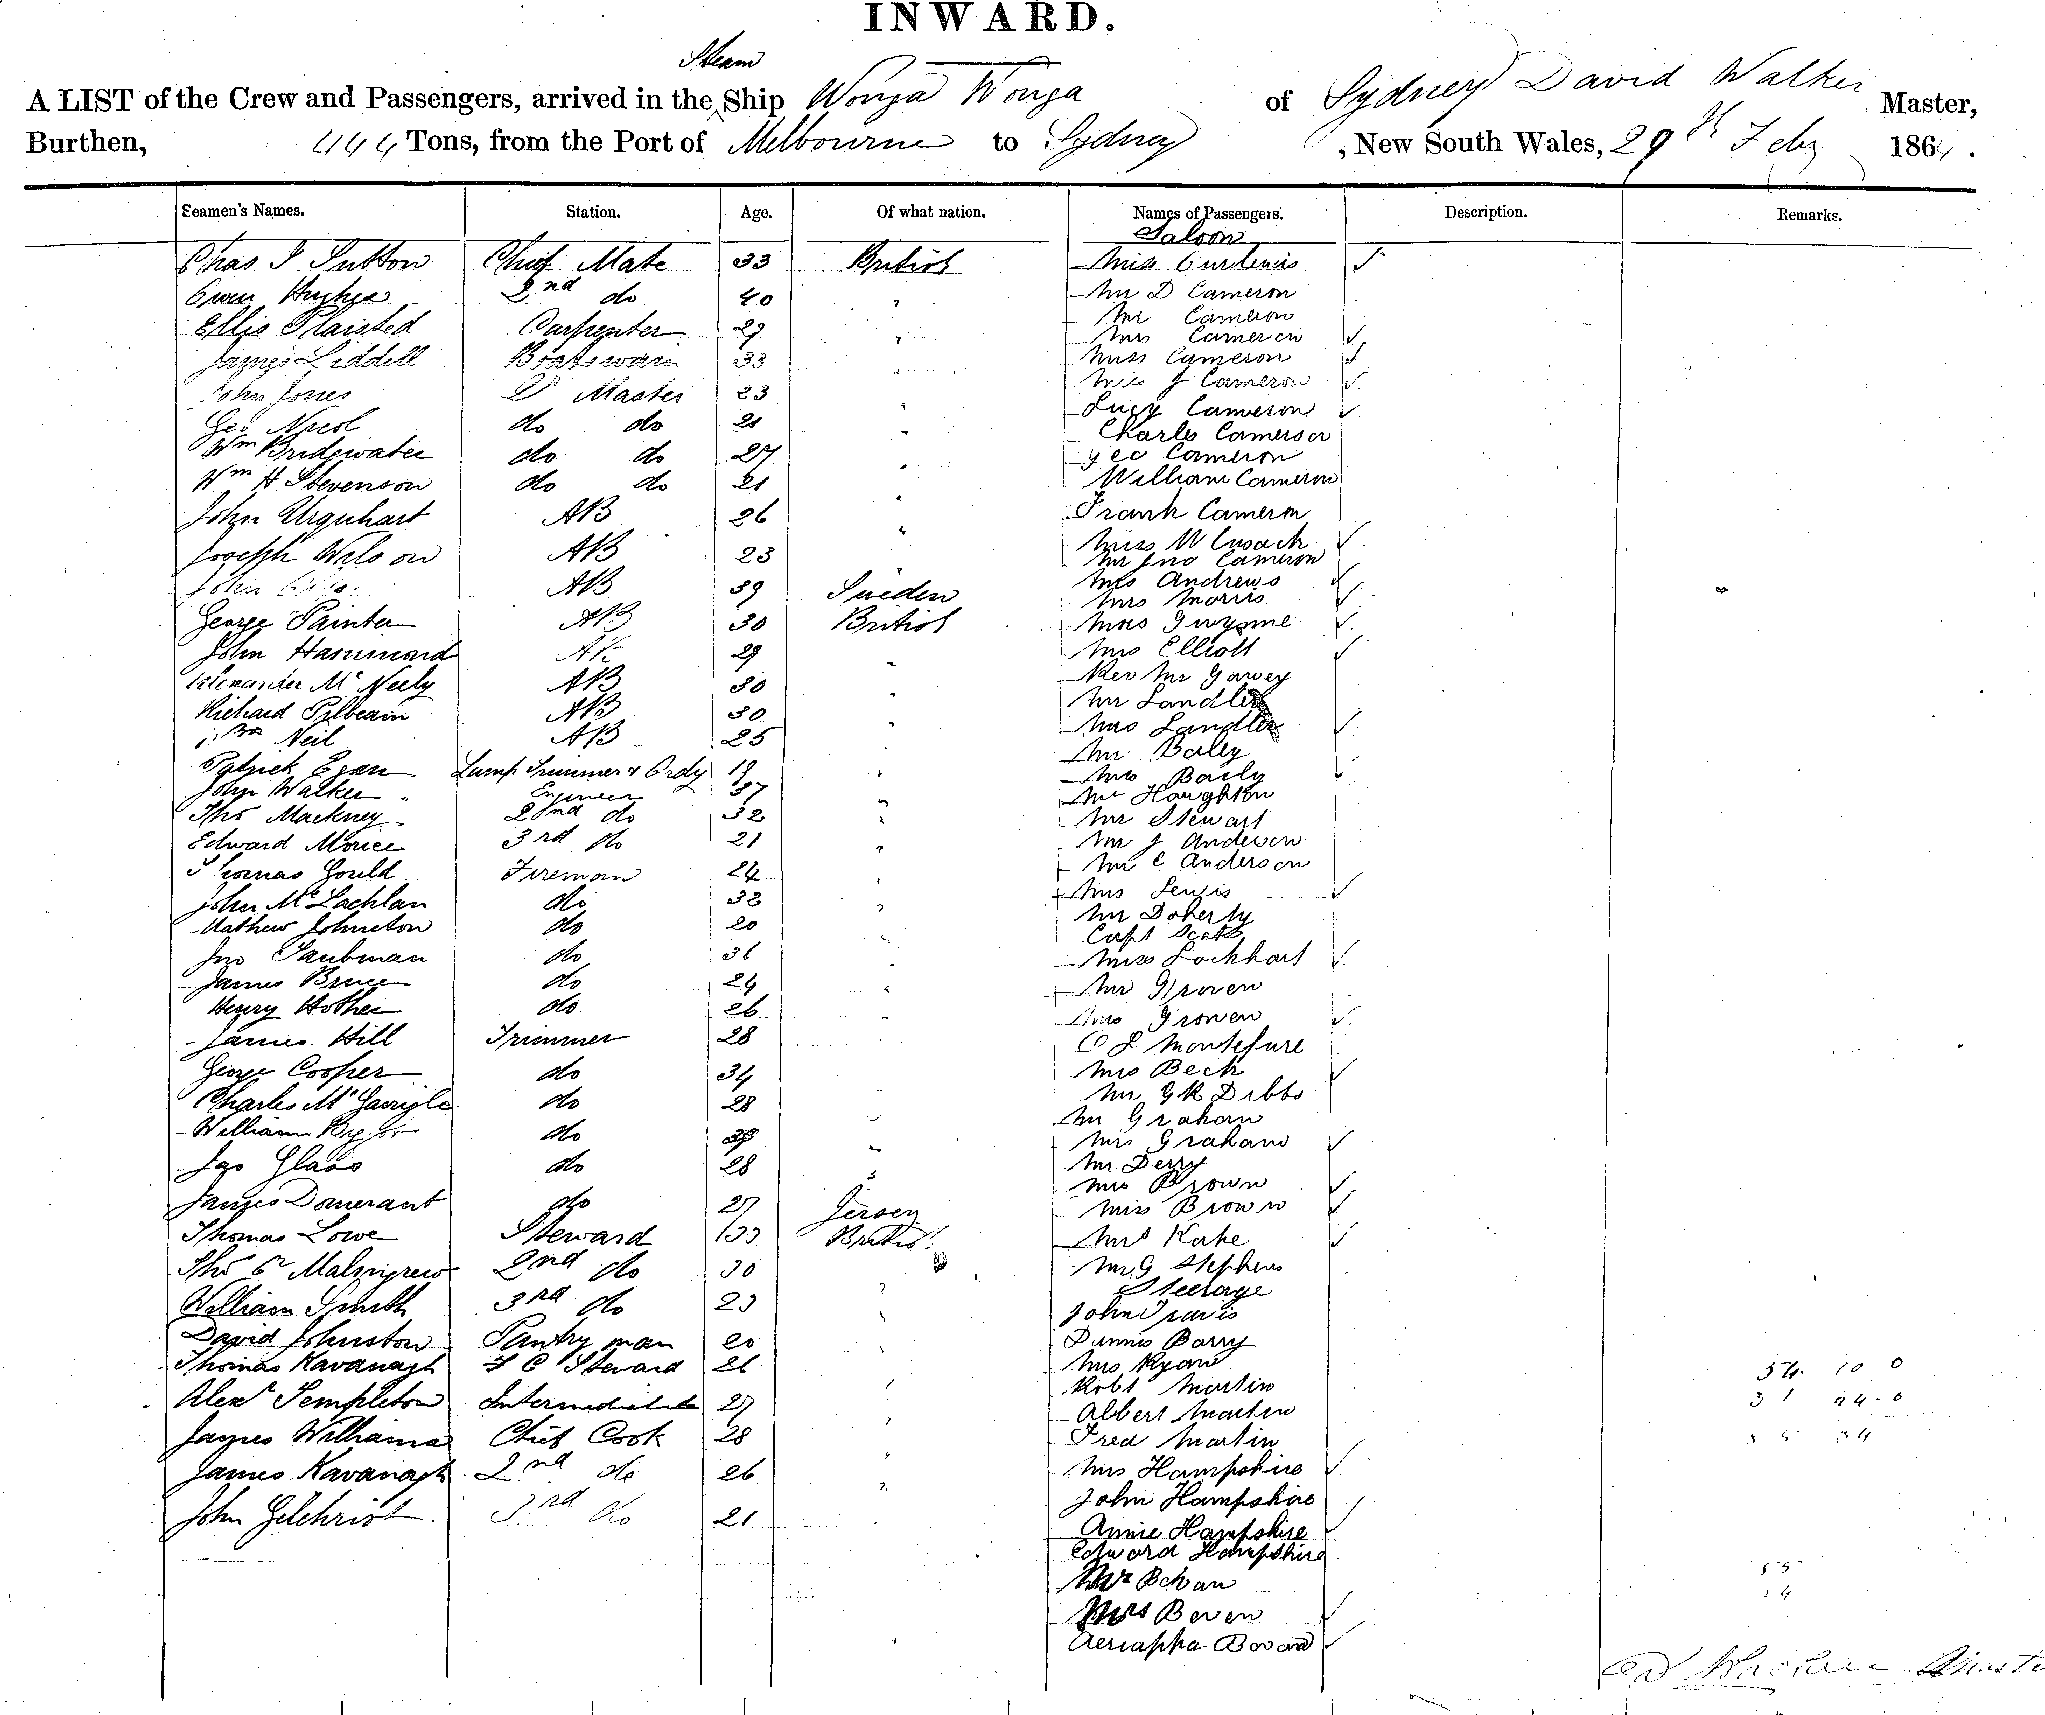 INWARD.
Steam
A LIST of the Crew and Passengers, arrived in the Ship Wonga Wonga of Sydney David Walker Master,
Burthen, 444 Tons, from the Port of Melbourne to Sydney, New South Wales, 29th Feby 1864.
Seamen's Names. Station. Age. Of what nation. Names of Passengers. Description. Remarks.
Saloon
Chas J Sutton Chief Mate 33 British Miss
Owen Hughes 2nd do 40 " Mr D Cameron
Mr Cameron
Ellis Plaisted Carpenter 29 " Mrs Cameron
James Liddell Boatswain 33 Miss Cameron
Miss J Cameron
John Jones Master 23 Lucy Cameron
Geo Nicol do do 21 " Charles Cameron
Wm Bridgwater do do 27 " Geo Cameron
Wm H Stevenson do do 21 " William Cameron
John Urquhart AB 26 " Frank Cameron
Miss Cusack
Joseph Wilson AB 23 " Mr Jno Cameron
John AB 39 Sueden Mrs Andrews
Mrs Morris
George Painter AB 30 British Mrs Gwynne
John Hammond AB 29 " Mrs Elliott
Alexander Mc Neely AB 30 " Rev Mr Garvey
Richard Pilbeam AB 30 " Mr Landler
Wm Neil AB 25 Mrs Landler
Mr Baily
Patrick Egan Lamp Trimmer & Ordy 19 " Mrs Baily
John Walker Engineer 37 Mr Haughton
Thos Mackney 2nd do 32 " Mr Stewart
Edward Morice 3rd do 21 " Mr J Anderson
Mr C Anderson
Thomas Gould Fireman 24 " Mrs
John McLachlan do 32 " Mr Doherty
Mathew Johnston do 20 Capt Scott
Jno Taubman do 36 Miss Lockhart
James Bruce do 24 Mr Groven
Henry Hother do 26 Mrs Groven
James Hill Trimmer 28 Montefiore
George Cooper do 34 Mrs Beck
Charles McGarrigle do 28 Mr G R Dibbs
Mr Graham
William do Mrs Graham
Jas Glass do 28 Mr Derry
Mrs Brown
James do 27 Jersey Miss Brown
Thomas Lowe Steward 33 British Mrs
Thos Malngrew 2nd do 30 Mr G Stephens
Steerage
William Smith 3rd do 23 John Travis
David Johnston Pantry man 20 Dennis Barry
Thomas Kavanagh F C Steward 21 Mrs Ryan
Robt Martin
Alexr Templeton Intermediate 27 Albert Martin
James Williams Chief Cook 28 Fred Martin
James Kavanagh 2nd do 26 Mrs Hampshire
John Hampshire
John Gilchrist 3rd do 21 Annie Hampshire
Edward Hampshire
Mr Bevan
Mrs Beven